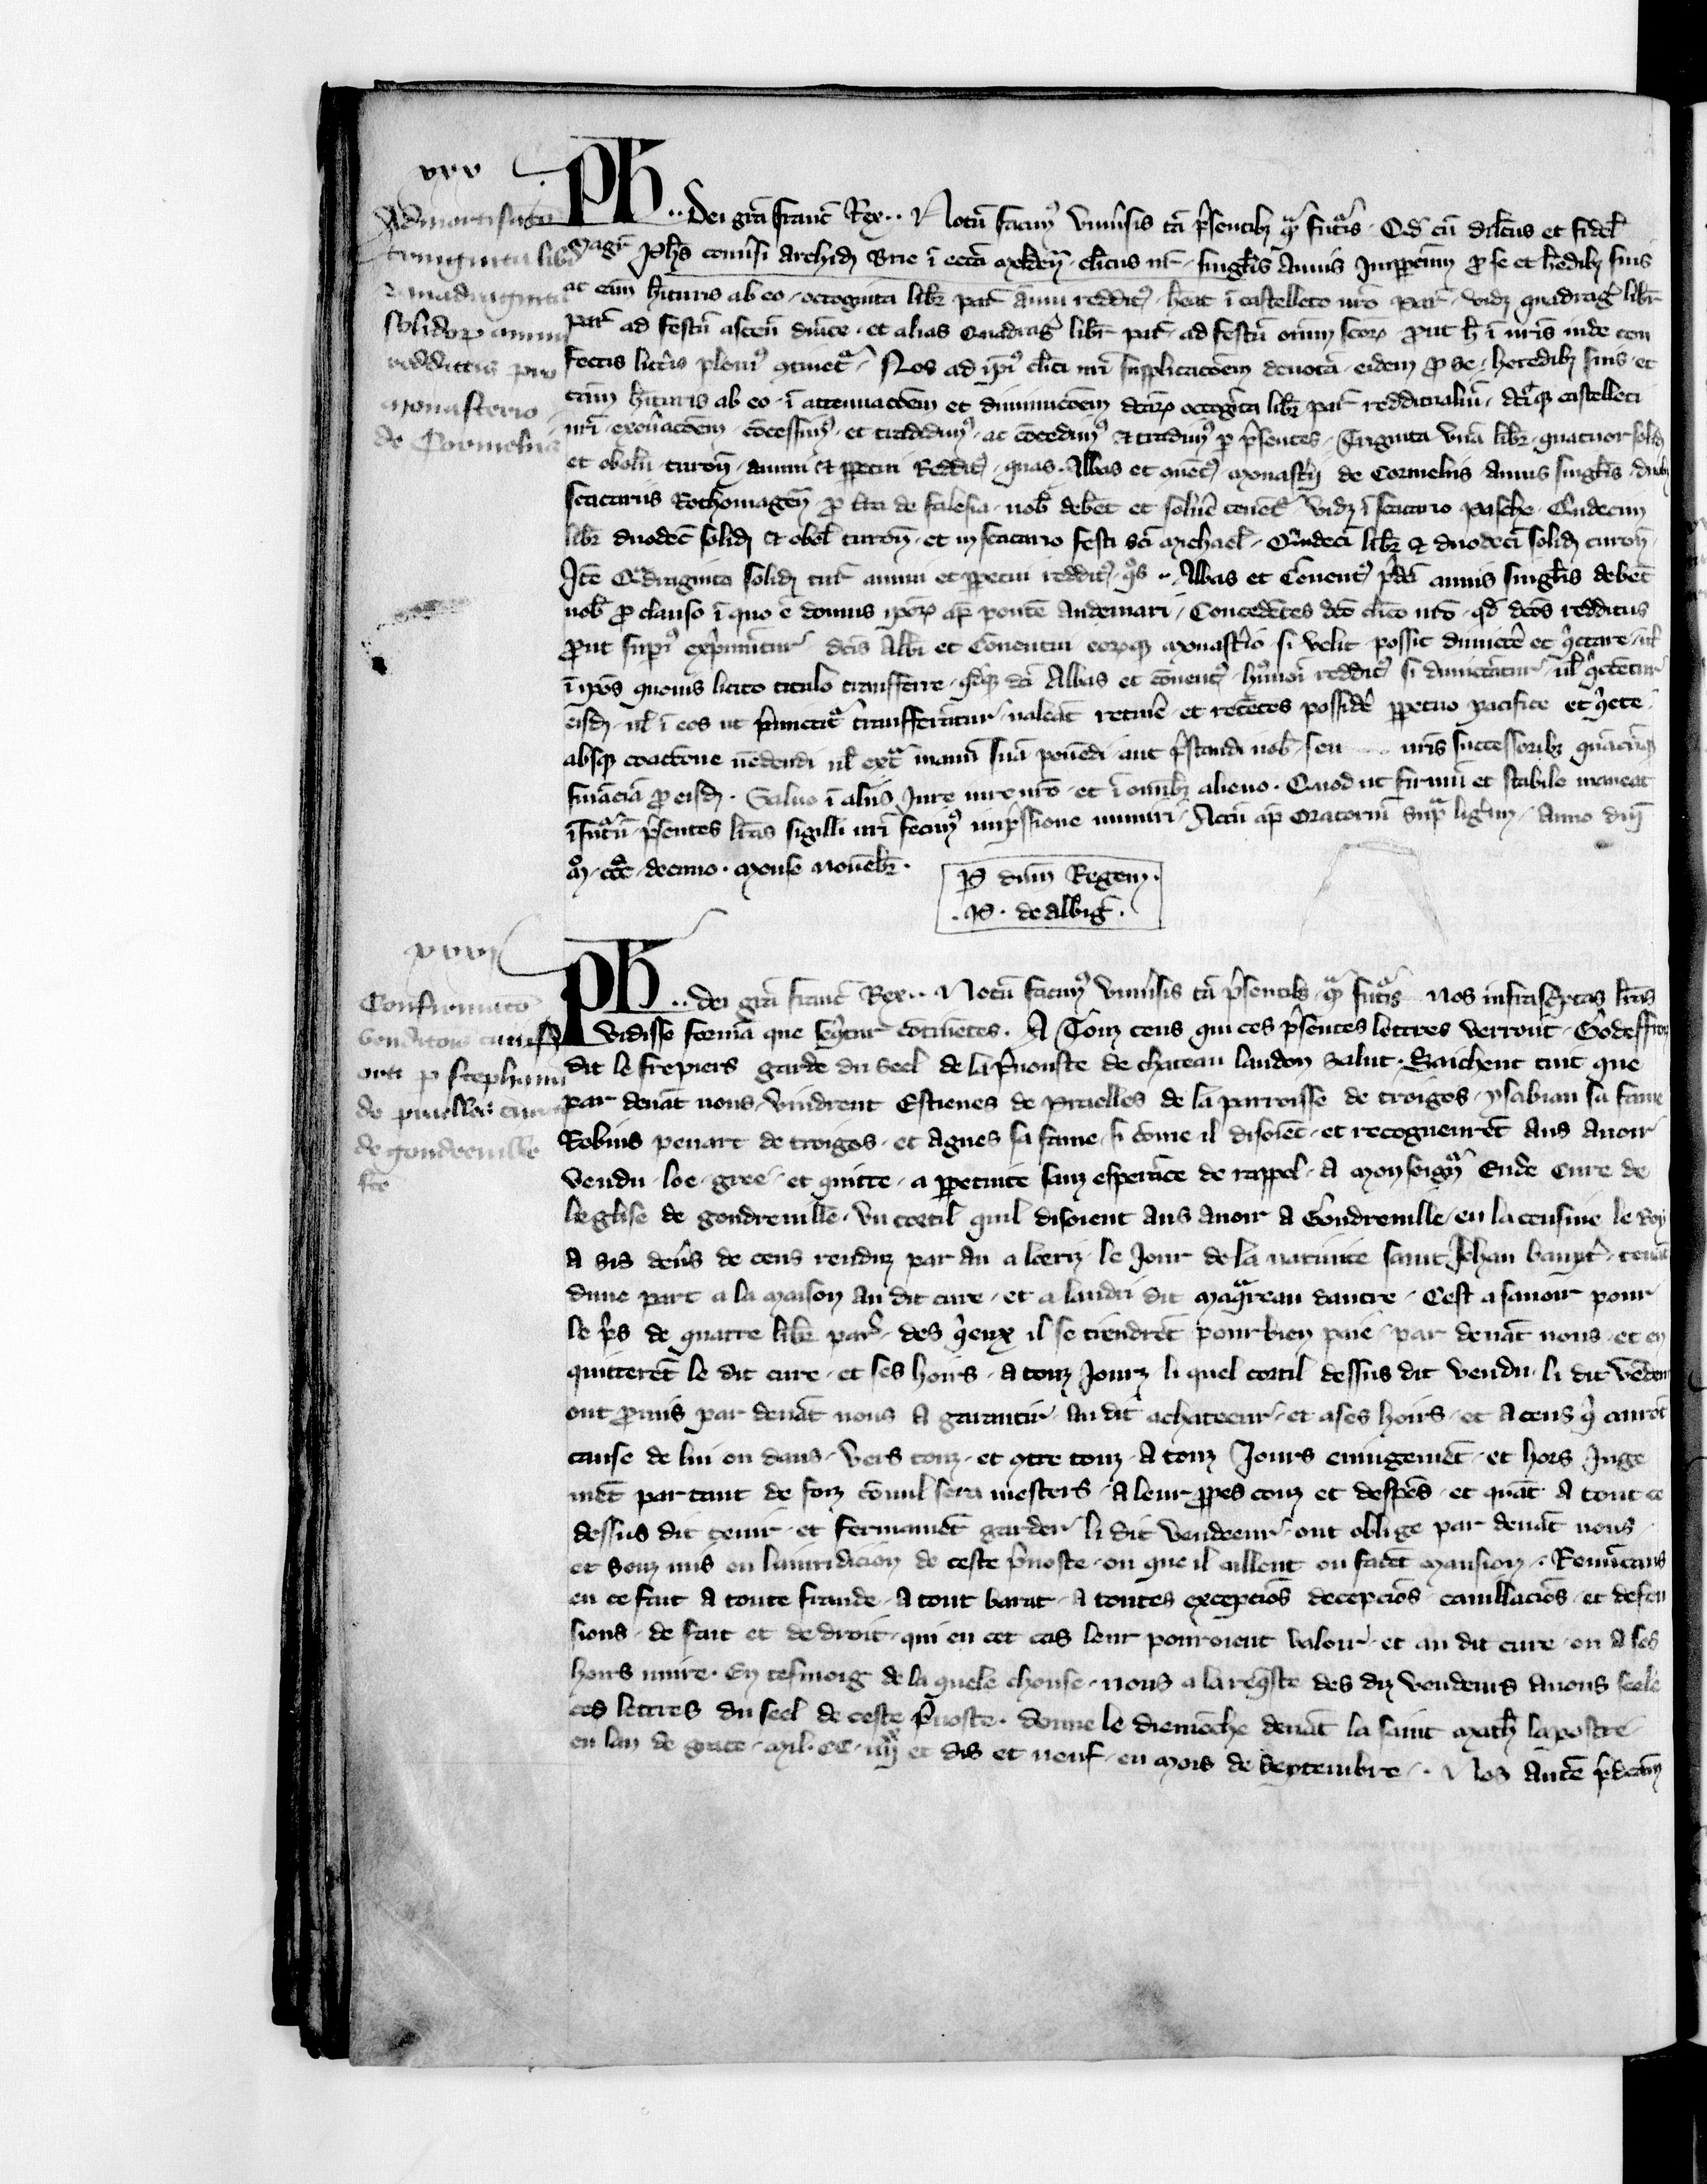 xxx
Admortisato
triuginta libr
quadraginta
solidor annui
redditus pro
monasterio
de Cormeliis
Ph .. Dei grã Franc Rex .. Notũ facimꝰ univ̾sis tã p̾sentibꝫ qͣ futͣis. Qd cũ dilc̃us et fidel̃
magr̃ Joh̃s conv̾si archidꝫ Brie ĩ ecc̃ia Meldeñ. cl̃icus nr̃. singl̃is annis Imppetuum ꝓ se et h̾edibꝫ suis
ac cãm h̃ituris ab eo. octoginta libr̃ par̃ ãnui redditꝰ h̾eat ĩ castelleto nr̃o par̃. vidꝫ quadrag̾ libr̃
par̃ ad festũ ascen̄ dñice. et alias Quadrag̾ libr̃ par̃ ad festũ omniũ sc̃oꝝ ꝓut h̾ ĩ nr̃is inde con
fectis litt̾is pleniꝰ ꝯtinetͬ. Nos ad ip̃iꝰ cl̃ici nr̃i supplicatõem devotã. eidem ꝓ se. heredibꝫ suis et
cãm h̃ituris ab eo. ĩ attenuacõem et diminucõem dc̃aꝝ octog̾ta libr̃ par̃ redditualiũ, dc̃iqꝫ castelleti
nr̃i exon̾acõem. cõcessimꝰ. et tradidimꝰ. ac cõcedimꝰ et tradimꝰ ꝑ p̾sentes. Triginta unã libr̃. quatuor solidꝫ
et obolũ turoñ. annui et ꝑpetui Redditꝰ. quas. Abbas et ꝯventꝰ monast̾ij de Cormeliis annis singl̃is. duobꝫ
scacariis Rothomageñ ꝓ tr̃a de Falesia. nob̾ debẽt et solv̾e tenẽtͬ vidꝫ ĩ scacario pasche. Qindecim
libr̃ duodeci solidꝫ et obol̃ turoñ. et in scacario festi sc̃i michael̃. Quindeci libr̃ et duodeci solidꝫ turoñ.
Itẽ Qͣdraginta solidꝫ tur̃ annui et ꝑpetui redditꝰ. q̾s .. Abbas et Conventꝰ p̾dc̃i annis singl̃is debẽt
nob̾ ꝓ clauso ĩ quo ẽ domus ip̃oꝝ apꝫ pontẽ audemari. Concedẽtes dc̃o cl̃ico nr̃o. qd dc̃os redditus
ꝓut sup̾iꝰ exp̾muntur. dc̃is Abb̃i et Conventui eorqꝫ monast̾io si velit possit dimitt̾e et q̾ttare. ul̃
ĩ ip̃os quovis licito titulo transferre. Qdqꝫ dc̃i Abbas et cõventꝰ. hꝰmoi redditꝰ si dimittãtur ul̃ q̾ttẽtur
eisdꝫ. ul̃ ĩ eos ut p̾mittitͬ transferãtur. valeãt retin̾e. et retẽtos possid̾e ꝑpetuo pacifice et q̾ete.
absqꝫ coactione vẽdendi ul̃ exͣ manũ suã ponẽdi. aut p̾standi nob̾. seu nr̃is successoribꝫ quãcũqꝫ
finãciã ꝓ eisdꝫ. Salvo ĩ aliis Jure nr̃o. et ĩ omĩbꝫ alieno. Quod ut firmũ et stabile maneat
ĩ futͬũ. p̾sentes litt̾as sigilli nr̃i fecimꝰ imp̾ssione muniri. Actũ apꝫ oratoriũ supͣ lig̾im. Anno dñi
mͦ. cccͦ. decimo. mense novẽbr̃.
Ꝑ dñm Regem.
.Jo. de albig̾.
xxxi
Confirmatio
venditois cuiusdꝫ
orti ꝑ stephanũ
de pruelles curato
de gondreville
fc̃e
Ph .. dei grã Franc Rex .. Notũ facimꝰ univ̾sis tã p̾sentibꝫ qͣ futͣis nos infrasc̾ptas litt̾as
vidisse formã que seq̾tur cõtinẽtes. A Touz ceus qui ces p̾sentes lettres verront. Godeffroy
dit le frepiers garde du seel de la p̾voste de chateau landon Salut. Saichent tuit que
par devãt nous vindrent Estienes de Pruelles de la parroisse de troigos. ysabiau sa fame
Robins penart de troigos. et Agnes sa fame. si cõme il disoiẽt. et recogneurẽt aus avoir
vendu. loe. gree. et quitte. a ꝑpetuite sanz esperãce de rappel. a monseign̾ Eude cure de
leglise de gondreville. un cortil quil disoient aus avoir a Gondreville en la censive le Roy
a sis den̾s de cens renduz par an a loeriz le Jour de la nativite saint Jehan bautꝫ. tenãt
dune part a la maison au dit cure. et a landri dit maq̾reau dautre. Cest asavoir pour
le p̾s de quatre libr̃ par̃. des q̾eux il se tiendrẽt pour bien paie par devãt nous. et en
quitterẽt le dit cure et ses hoirs. a touz Jourz li quel cortil dessus dit vendu. li dit vẽdeur
ont ꝓmis par devãt nous a garantir. au dit achateeur. et a ses hoirs. et a ceus q̾ aurõt
cause de lui en dans. vers touz. et ꝯtre touz. a touz Jours en iugemẽt. et hors Juge
mẽt par tant de foiz cõm il sera mesters. a leur ꝓpes couz et despẽs. et quãt a tout ce
dessus dit tenir. et fermamẽt garder. li dit vendeeur. ont oblige par devãt nous
et souz mis en la iuridicion de ceste p̾voste. ou que il aillent ou facẽt mansion. Renũcans
en ce fait a toute fraude. a tout barat. a toutes excepciõs decepciõs cavillaciõs. et defen
sions. de fait et de droit. qui en cet cas leur pourroient valoir. et au dit cure. ou a ses
hoirs nuire. En tesmoig de la quele chouse. nous a la req̾ste des diz vendeurs avons seele
ces lettres du seel de ceste p̾voste. donne le diemẽche devãt la saint math̾ lapostre
en lan de grace. mil. CC. iiijxx et dis et neuf. en mois de Septembre. Nos autẽ p̾dictam